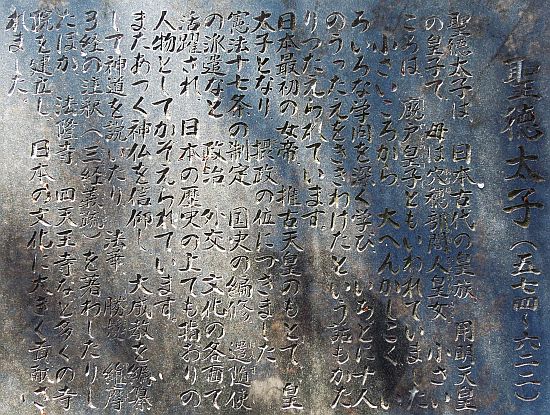 聖徳太子(五七四〜六二二)
聖徳太子は 日本古代の皇族 用明天皇
の皇子で 母は穴穂部間人皇女 小さい
ころは 厩戸皇子ともいわれていました
小さいころから 大へんかしこく い
ろいろな学問を深く学び いちどに十人
のうったえをききわけたという話もかた
りつたえられています。
日本最初の女帝 推古天皇のもとで 皇
太子となり 摂政の位につきました
憲法十七条の制定 国史の編修 遣隋使
の派遣など 政治 外交 文化の各面で
活躍され 日本の歴史の上でも指おりの
人物としてかぞえられています
またあつく神仏を信仰し 大成教を編纂
して神道を説いたり 法華 勝鬘 維摩
3経の注釈(三経義疏)を著わしたりし
たほか 法隆寺 四天王寺など多くの寺
院を建立し 日本の文化に大きく貢献さ
れました